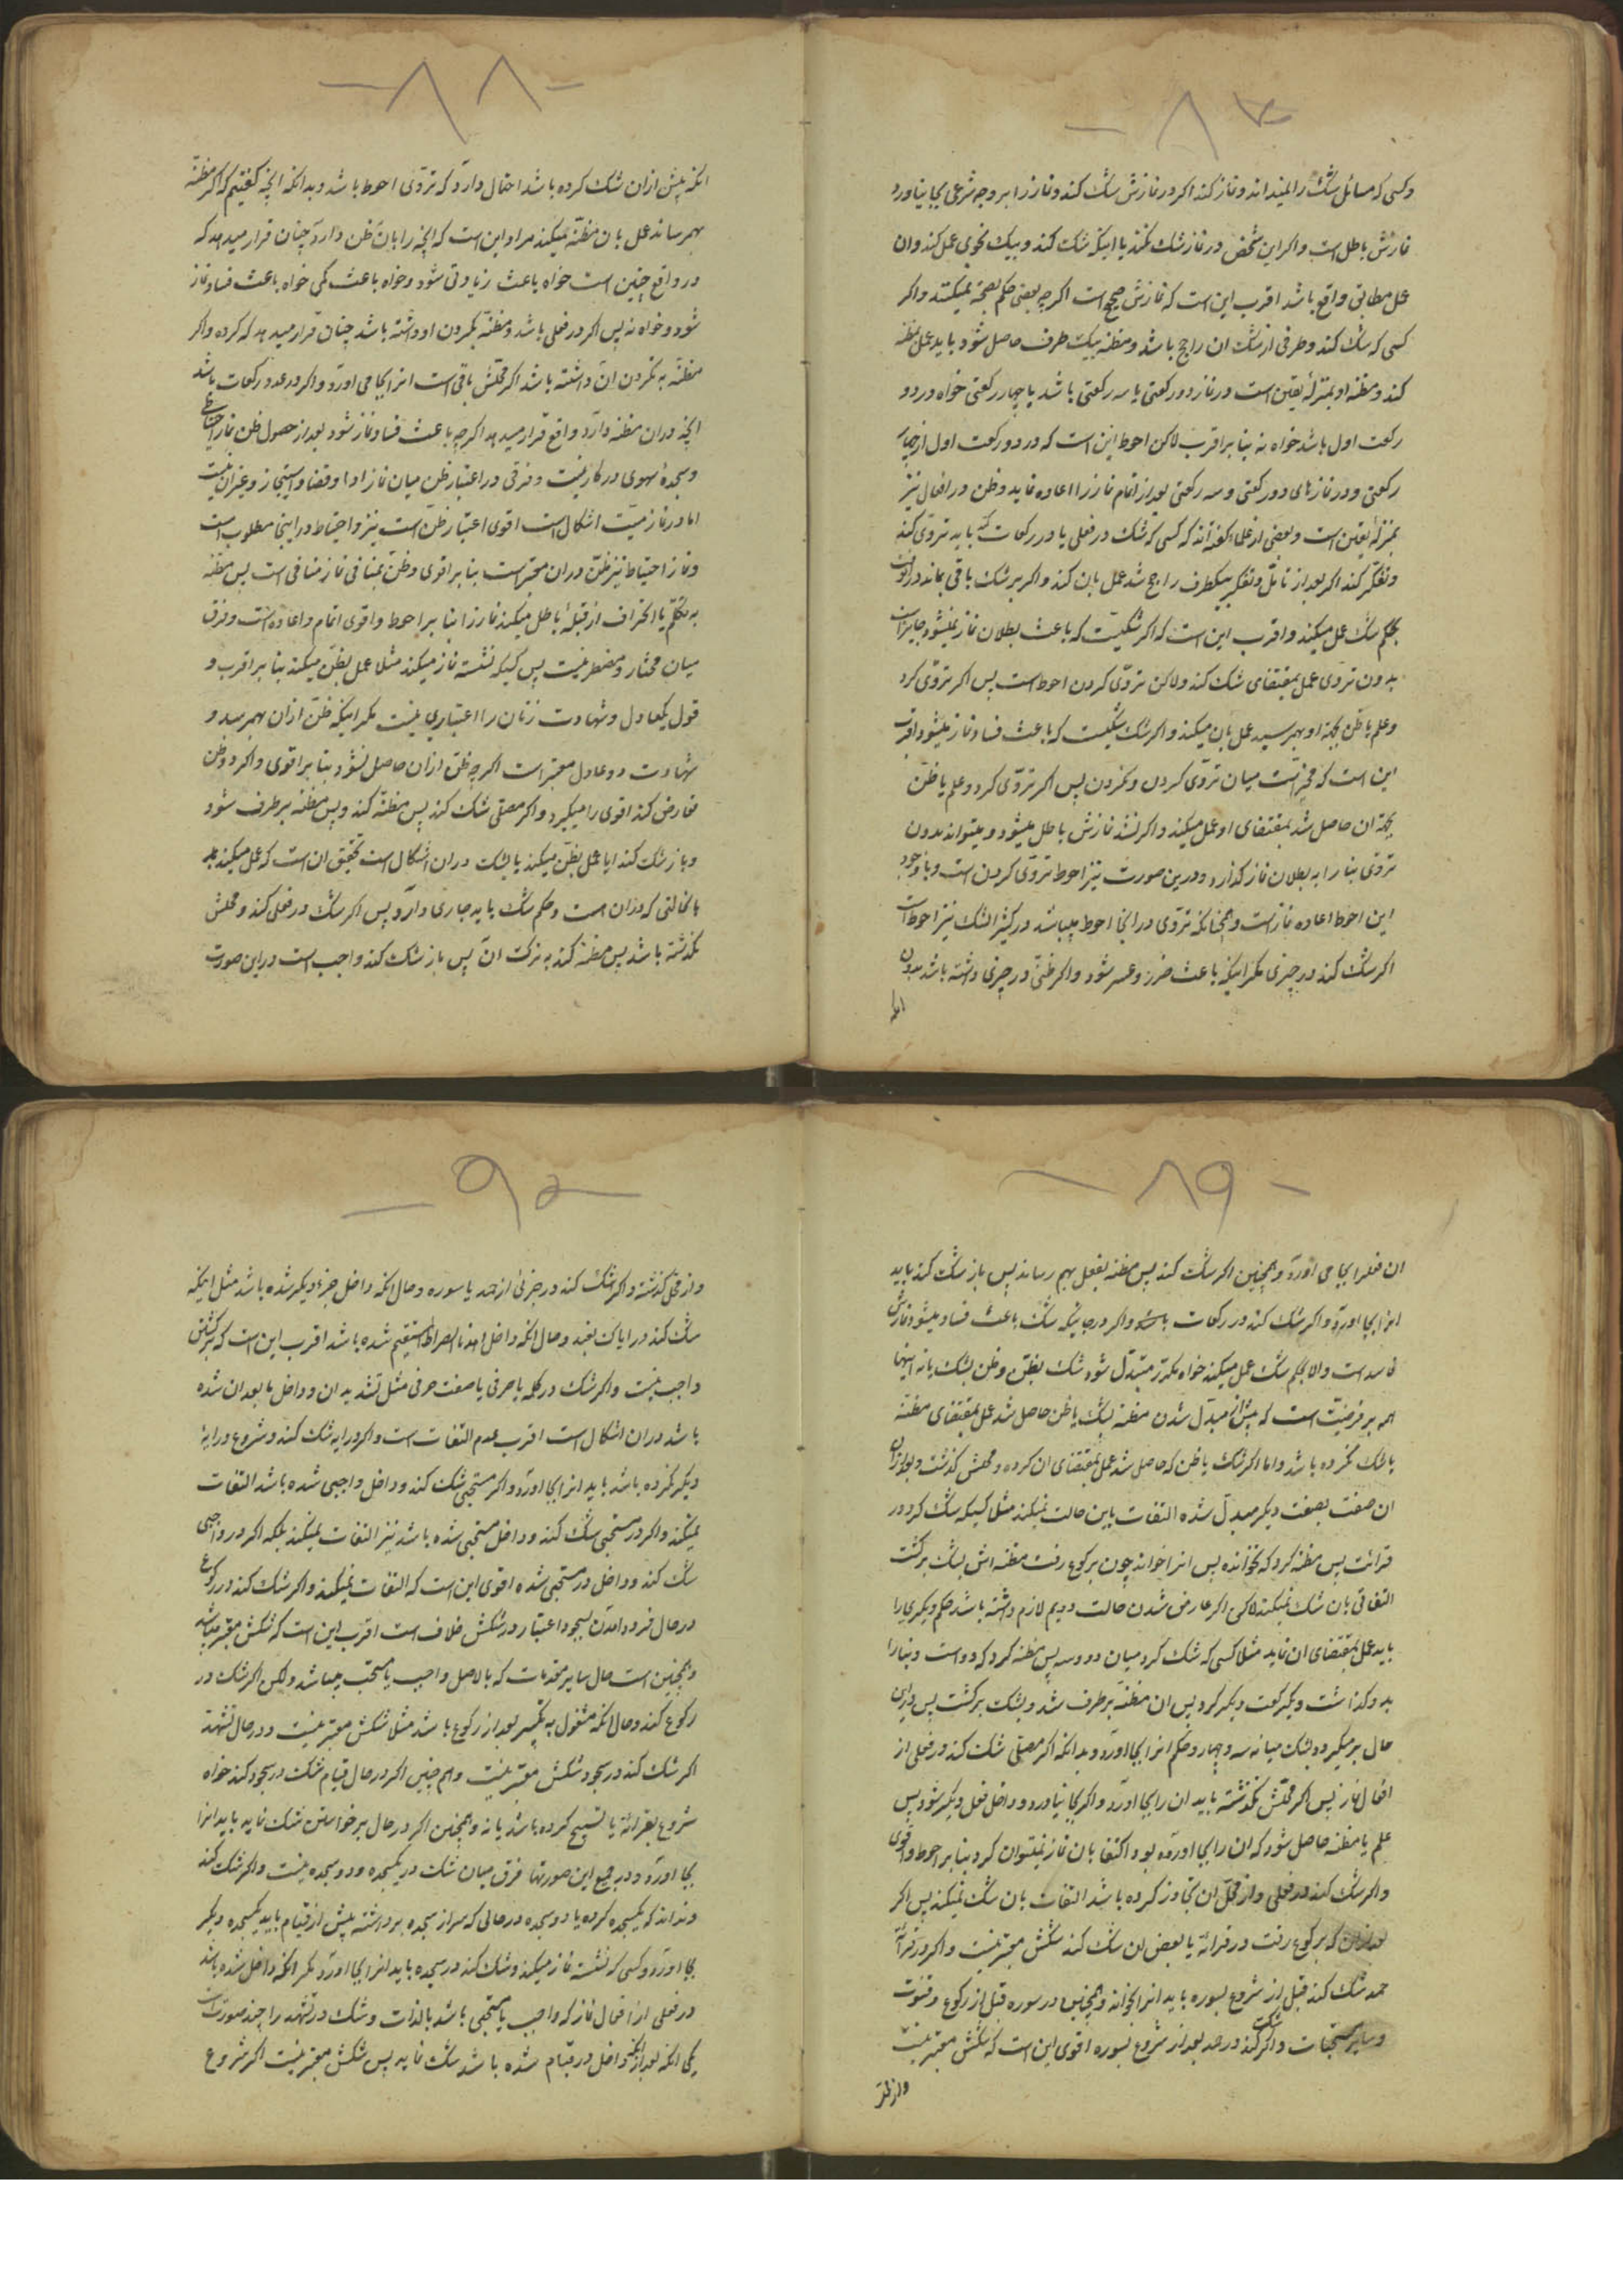 -۸۷-
وکسی که مسائل شک را نمیداند و نماز کند اکر در نمازش شک کند و نماز را بر وجه شرعی بجا نیاورد
نمازش باطل است و اکر این شخص در نماز شک نکند یا اینکه شک کند و بیک نحوی عمل کند و ان
عمل مطابق واقع باشد اقرب این است که نمازش صحیح است اکرچه بعضی حکم بصحة نمیکنند و اکر
کسی که شک کند و طرفی از شک ان راجح باشد و مظنه بیک طرف حاصل شود باید عمل بمظنه
کند و مظنه او بمنزلۀ یقین است در نماز دو رکعتی یا سه رکعتی باشد یا چهار رکعتی خواه در دو
رکعت اول باشد خواه نه بنا بر اقرب لاکن احوط این است که در دو رکعت اول از چهار
رکعتی و در نمازهای دو رکعتی و سه رکعتی بعد از اتمام نماز را اعاده نماید و ظن در افعال نیز
بمنزلۀ یقین است و بعضی از علما کفته‌اند که کسی که شک در فعلی یا در رکعات کند باید تروّی کند
و تفکر کند اکر بعد از تأمّل و تفکر بیکطرف راجح شد عمل بان کند و اکر بر شک باقی بماند در انوقت
بحکم شک عمل میکند و اقرب این است که اکر شکیست که باعث بطلان نماز نمیشود جایز است
بدون تروی عمل بمقتضای شک کند و لاکن تروّی کردن احوط است پس اکر تروّی کرد
و علم یا ظن بجهة او بهمرسید عمل بان میکند و اکر شک شکیست که باعث فساد نماز میشود اقرب
این است که مخیّر است میان تروّی کردن و نکردن پس اکر تروّی کرد و علم یا ظنّ
بجهة ان حاصل شد بمقتضای او عمل میکند و اکر نشد نمازش باطل میشود و میتواند بدون
تروّی بنا را به بطلان نماز کذارد و درین صورت نیز احوط تروّی کردن است و با وجود
این احوط اعاده نماز است و همچنانکه تروّی در اینجا احوط میباشد در کثیر الشک نیز احوط است
اکر شک کند در چیزی مکر اینکه باعث ضرر و عسر شود و اکر ظنّی در چیزی داشته باشد بدون
انکه
-۸۸-
انکه پیش ازان شک کرده باشد احتمال دارد که تروّی احوط باشد و بدانکه انچه کفتیم که اکر مظنّه
بهمرساند عمل بان مظنّه میکند مراد این است که انچه را بان ظن دارد چنان قرار میدهد که
در واقع چنین است خواه باعث زیادتی شود و خواه باعث کمی خواه باعث فساد نماز
شود و خواه نه پس اکر در فعلی باشد و مظنّه بکردن او داشته باشد چنان قرار میدهد که کرده و اکر
مظنّه به نکردن ان داشته باشد اکر محلش باقی است انرا بجا می اورد و اکر در عدد رکعات باشد
انچه دران مظنه دارد واقع قرار میدهد اکرچه باعث فساد نماز شود بعد از حصول ظن نماز احتیاط
و سجدۀ سهوی در کار نیست و فرقی در اعتبار ظن میان نماز ادا و قضا و استیجار و غیران نیست
اما در نماز میّت اشکال است اقوی اعتبار ظنّ است نیز و احتیاط در اینجا مطلوب است
و نماز احتیاط نیز ظنّ دران معتبر است بنا بر اقوی و ظنّ بمنافی نماز منافی است پس مظنّه
به تکلّم یا انحراف از قبله باطل میکند نماز را بنا بر احوط و اقوی اتمام و اعاده است و فرق
میان مختار و مضطر نیست پس کسیکه نشسته نماز میکند مثلا عمل بظنّ میکند بنا بر اقرب و
قول یکعادل و شهادت زنان را اعتباری نیست مکر اینکه ظنّ ازان بهمرسد و
شهادت دو عادل معتبر است اکرچه ظنّ ازان حاصل نشود بنا بر اقوی و اکر دو ظن
تعارض کند اقوی را میکیرد و اکر مصلّی شک کند پس مظنّه کند و پس مظنّه برطرف شود
و باز شک کند ایا عمل بظنّ میکند یا بشک دران اشکال است تحقیق ان است که عمل میکند
با حالتی که دران است و حکم شک باید جاری دارد پس اکر شک در فعلی کند و محلش
نکذشته باشد پس مظنّه کند به ترک ان پس باز شک کند واجب است دراین صورت
-۸۹-
ان فعلرا بجا می اورد و همچنین اکر شک کند پس مظنه بفعل بهم رساند پس باز شک کند باید
انرا بجا اورد و اکر شک کند در رکعات باشد و اکر در جائیکه شک باعث فساد میشود نمازش
فاسد است والا بحکم شک عمل میکند خواه مکرّر متبدّل شود شک بظنّ و ظن بشک یا نه اینها
همه بر فرضیست که پیش از مبدّل شدن مظنه بشک یا ظن حاصل شد عمل بمقتضای مظنّه
یا شک نکرده باشد و اما اکر شک یا ظن که حاصل شد عمل بمقتضای ان کرده و محلش کذشت و بعد ازان
ان صفت بصفت دیکر مبدلّ شده التفات باین حالت نمیکند مثل کسیکه شک کرد در
قرائت پس مظنه کرد که نخوانده پس انرا خواند چون برکوع رفت مظنه اش بشک برکشت
التفاتی بان شک نمیکند لاکن اکر عارض شدن حالت دویم لازم داشته باشد حکم دیکری را
باید عمل بمقتضای ان نماید مثلا کسی که شک کرد میان دو و سه پس مظنه کرد که دو است و بنا را
بدو کذاشت و یکرکعت دیکر کرد پس ان مظنّه برطرف شد و بشک برکشت پس دراین
حال برمیکردد بشک میانه سه و چهار و حکم انرا بجا اورد و بدانکه اکر مصلّی شک کند در فعلی از
افعال نماز پس اکر محلّش نکذشته باید ان را بجا اورد و اکر بجا نیاورد و داخل فعل دیکر شود پس
علم یا مظنّه حاصل شود که ان را بجا اورده بود اکتفا بان نماز نمیتوان کرد بنا بر احوط و اقوی
و اکر شک کند در فعلی و از محلّ ان تجاوز کرده باشد التفات بان شک نمیکند پس اکر
بعد ازان که برکوع رفت در قرائة یا بعض ان شک کند شکش معتبر نیست و اکر در قرائة
حمد شک کند قبل از شروع بسوره باید انرا بخواند و همچنین در سوره قبل از رکوع و قنوت
و سایر مستحبات و اکر شک کند در حمد بعد از شروع بسوره اقوی این است که شکش معتبر نیست
-۹۰-
و از محل کذشته و اکر شک کند در جزئی از حمد یا سوره و حال انکه داخل جزء دیکر شده باشد مثل اینکه
شک کند در ایاک نعبد و حال انکه داخل اهدنا الصراط المستقیم شده باشد اقرب این است که برکشتن
واجب نیست و اکر شک در کلمه یا حرفی یا صفت حرفی مثل تشدید ان و داخل مابعد ان شده
باشد دران اشکال است اقرب عدم التفات است و اکر در ایه شک کند و شروع در ایۀ
دیکر نکرده باشد باید انرا بجا اورد و اکر مستحبی شک کند و داخل واجبی شده باشد التفات
نمیکند و اکر در مستحبی شک کند و داخل مستحبی شده باشد نیز التفات نمیکند بلکه اکر در واجبی
شک کند و داخل در مستحبی شده اقوی این است که التفات نمیکند و اکر شک کند در رکوع
در حال فرود امدن بسجود اعتبار در شکش خلاف است اقرب این است که شکش معتبر میباشد
و همچنین است حال سایر مقدمات که بالاصل واجب یا مستحب میباشد ولکن اکر شک در
رکوع کند و حال انکه مشغول به تکبیر بعد از رکوع باشد مثلا شکش معتبر نیست و در حال تشهّد
اکر شک کند در سجود شکش معتبر نیست و هم چنین اکر در حال قیام شک در سجود کند خواه
شروع بقرائة یا تسبیح کرده باشد یا نه و همچنین اکر در حال برخواستن شک نماید باید انرا
بجا اورد و در جمیع این صورتها فرق میان شک در یکسجده و دو سجده نیست و اکر شک کند
و نداند که یکسجده کرده یا دو سجده در حالی که سر از سجده برداشته پیش از قیام باید یکسجده دیکر
بجا اورد و کسی که نشسته نماز میکند و شک کند در سجده باید انرا بجا اورد مکر انکه داخل شده باشد
در فعلی از افعال نماز که واجب یا مستحبی باشد بالذات و شک در تشهّد را چند صورت است
یکی انکه بعد ازانکه داخل در قیام شده باشد شک نماید پس شکش معتبر نیست اکر شروع